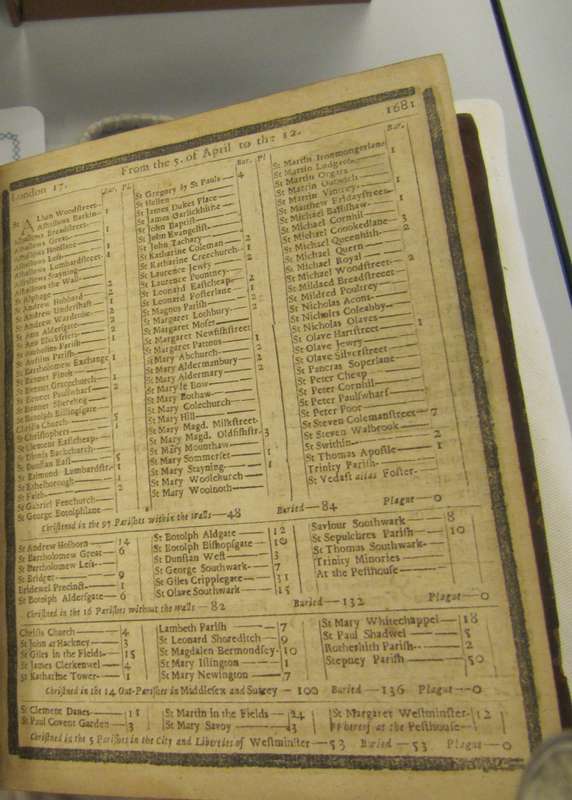 London 17. From the 5. of April to the 12. 1681
Bar. Pl.
St Alban Woodstreet
Alhallows Barkin
Alhallows Breadstreet 1
Alhallows Great
Alhallows Honilane
Alhallows Less 1
Alhallows Lumbardstreet
Alhallows Stayning 1
Alhallows the Wall
St Alphage 2
St Andrew Hubbard 2
St Andrew Undershaft 1
St Andrew Wardrobe 2
St Ann Aldersgate 2
St Ann Blackfriers
St Antholins Parish
St Austins Parish
St Bartholomew Exchange 1
St Bennet Finck
St Bennet Gracechurch
St Bennet Paulswharf 2
St Bennet Sherehog
St Botolph Billingsgate
Christs Church 5
St Christophers 1
St Clement Eastcheap
St Dionis Backchurch
St Dunstan East 5
St Edmund Lumbardstr. 1
St Ethelborough 1
St Faith 2
St Gabriel Fenchurch
St George Botolphlane
Bar. Pl
St Gregory by St Pauls 4
St Hellen
St James Dukes Place
St James Garlickhithe
St John Baptist
St John Evangelist
St John Zachary
St Katharine Coleman 2
St Katharine Creechurch 1
St Laurence Jewry
St Laurence Pountney
St Leonard Eastcheap 2
St Leonard Fosterlane 1
St Magnus Parish 2
St Margaret Lothbury
St Margaret Moses
St Margaret Newfishstreet
St Margaret Pattons
St Mary Abchurch 2
St Mary Aldermanbury 2
St Mary Aldermary 2
St Mary le Bow
St Mary Bothaw
St Mary Colechurch
St Mary Hill
St Mary Magd. Milkstreet
St Mary Magd. Oldfishstr. 3
St Mary Mounthaw
St Mary Sommerset 1
St Mary Stayning 1
St Mary Woolchurch
St Mary Woolnoth
Bar.
St Martin Ironmongerlane 1
St Martin Ludgate
St Martin Orgars
St Martin Outwich 1
St Martin Vintrey
St Matthew Fridaystreet
St Michael Bassishaw 1
St Michael Cornhil
St Michael Crookedlane 3
St Michael Queenhith 2
St Michael Quern
St Michael Royal
St Michael Woodstreet 2
St Mildred Breadstreet
St Mildred Poultrey
St Nicholas Acons
St Nicholas Coleabby
St Nicholas Olaves
St Olave Hartstreet 1
St Olave Jewry
St Olave Silverstreet
St Pancras Soperlane
St Peter Cheap
St Peter Cornhil
St Peter Paulswharf
St Peter Poor
St Steven Colemanstreet 7
St Steven Walbrook
St Swithin 2
St Thomas Apostle 1
Trinity Parish
St Vedast alias Foster
Christned in the 97 Parishes within the Walls — 48 Buried — 84 Plague — 0
St Andrew Holborn 14
St Bartholomew Great 6
St Bartholomew Less
St Bridget 9
Bridewel Precinct 1
St Botolph Aldersgate 6
St Botolph Aldgate 12
St Botolph Bishopsgate 10
St Dunstan West 3
St George Southwark 7
St Giles Cripplegate 31
St Olave Southwark 15
Saviour Southwark 8
St Sepulchres Parish 10
St Thomas Southwark
Trinity Minories
At the Pesthouse
Christned in the 16 Parishes without the Walls — 82 Buried — 132 Plague — 0
Christs Church 4
St John at Hackney 3
St Giles in the Fields 15
St James Clerkenwel 4
St Katharine Tower 1
Lambeth Parish 7
St Leonard Shoreditch 9
St Magdalen Bermondsey 10
St Mary Islington 1
St Mary Newington 7
St Mary Whitechappel 18
St Paul Shadwel 5
Rotherhith Parish 2
Stepney Parish 50
Christned in the 14 Out-Parishes in Middlesex and Surrey — 100 Buried — 136 Plague — 0
St Clement Danes 11
St Paul Covent Garden 3
St Martin in the Fields 24
St Mary Savoy 3
St Margaret Westminster 12
Whereof at the Pesthouse
Christned in the 5 Parishes in the City and Liberties of Westminster — 53 Buried — 53 Plague — 0